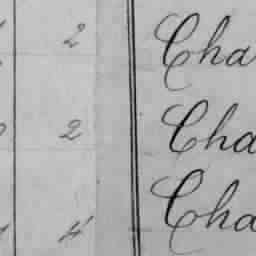 2 Cha
2 Cha
4 Cha